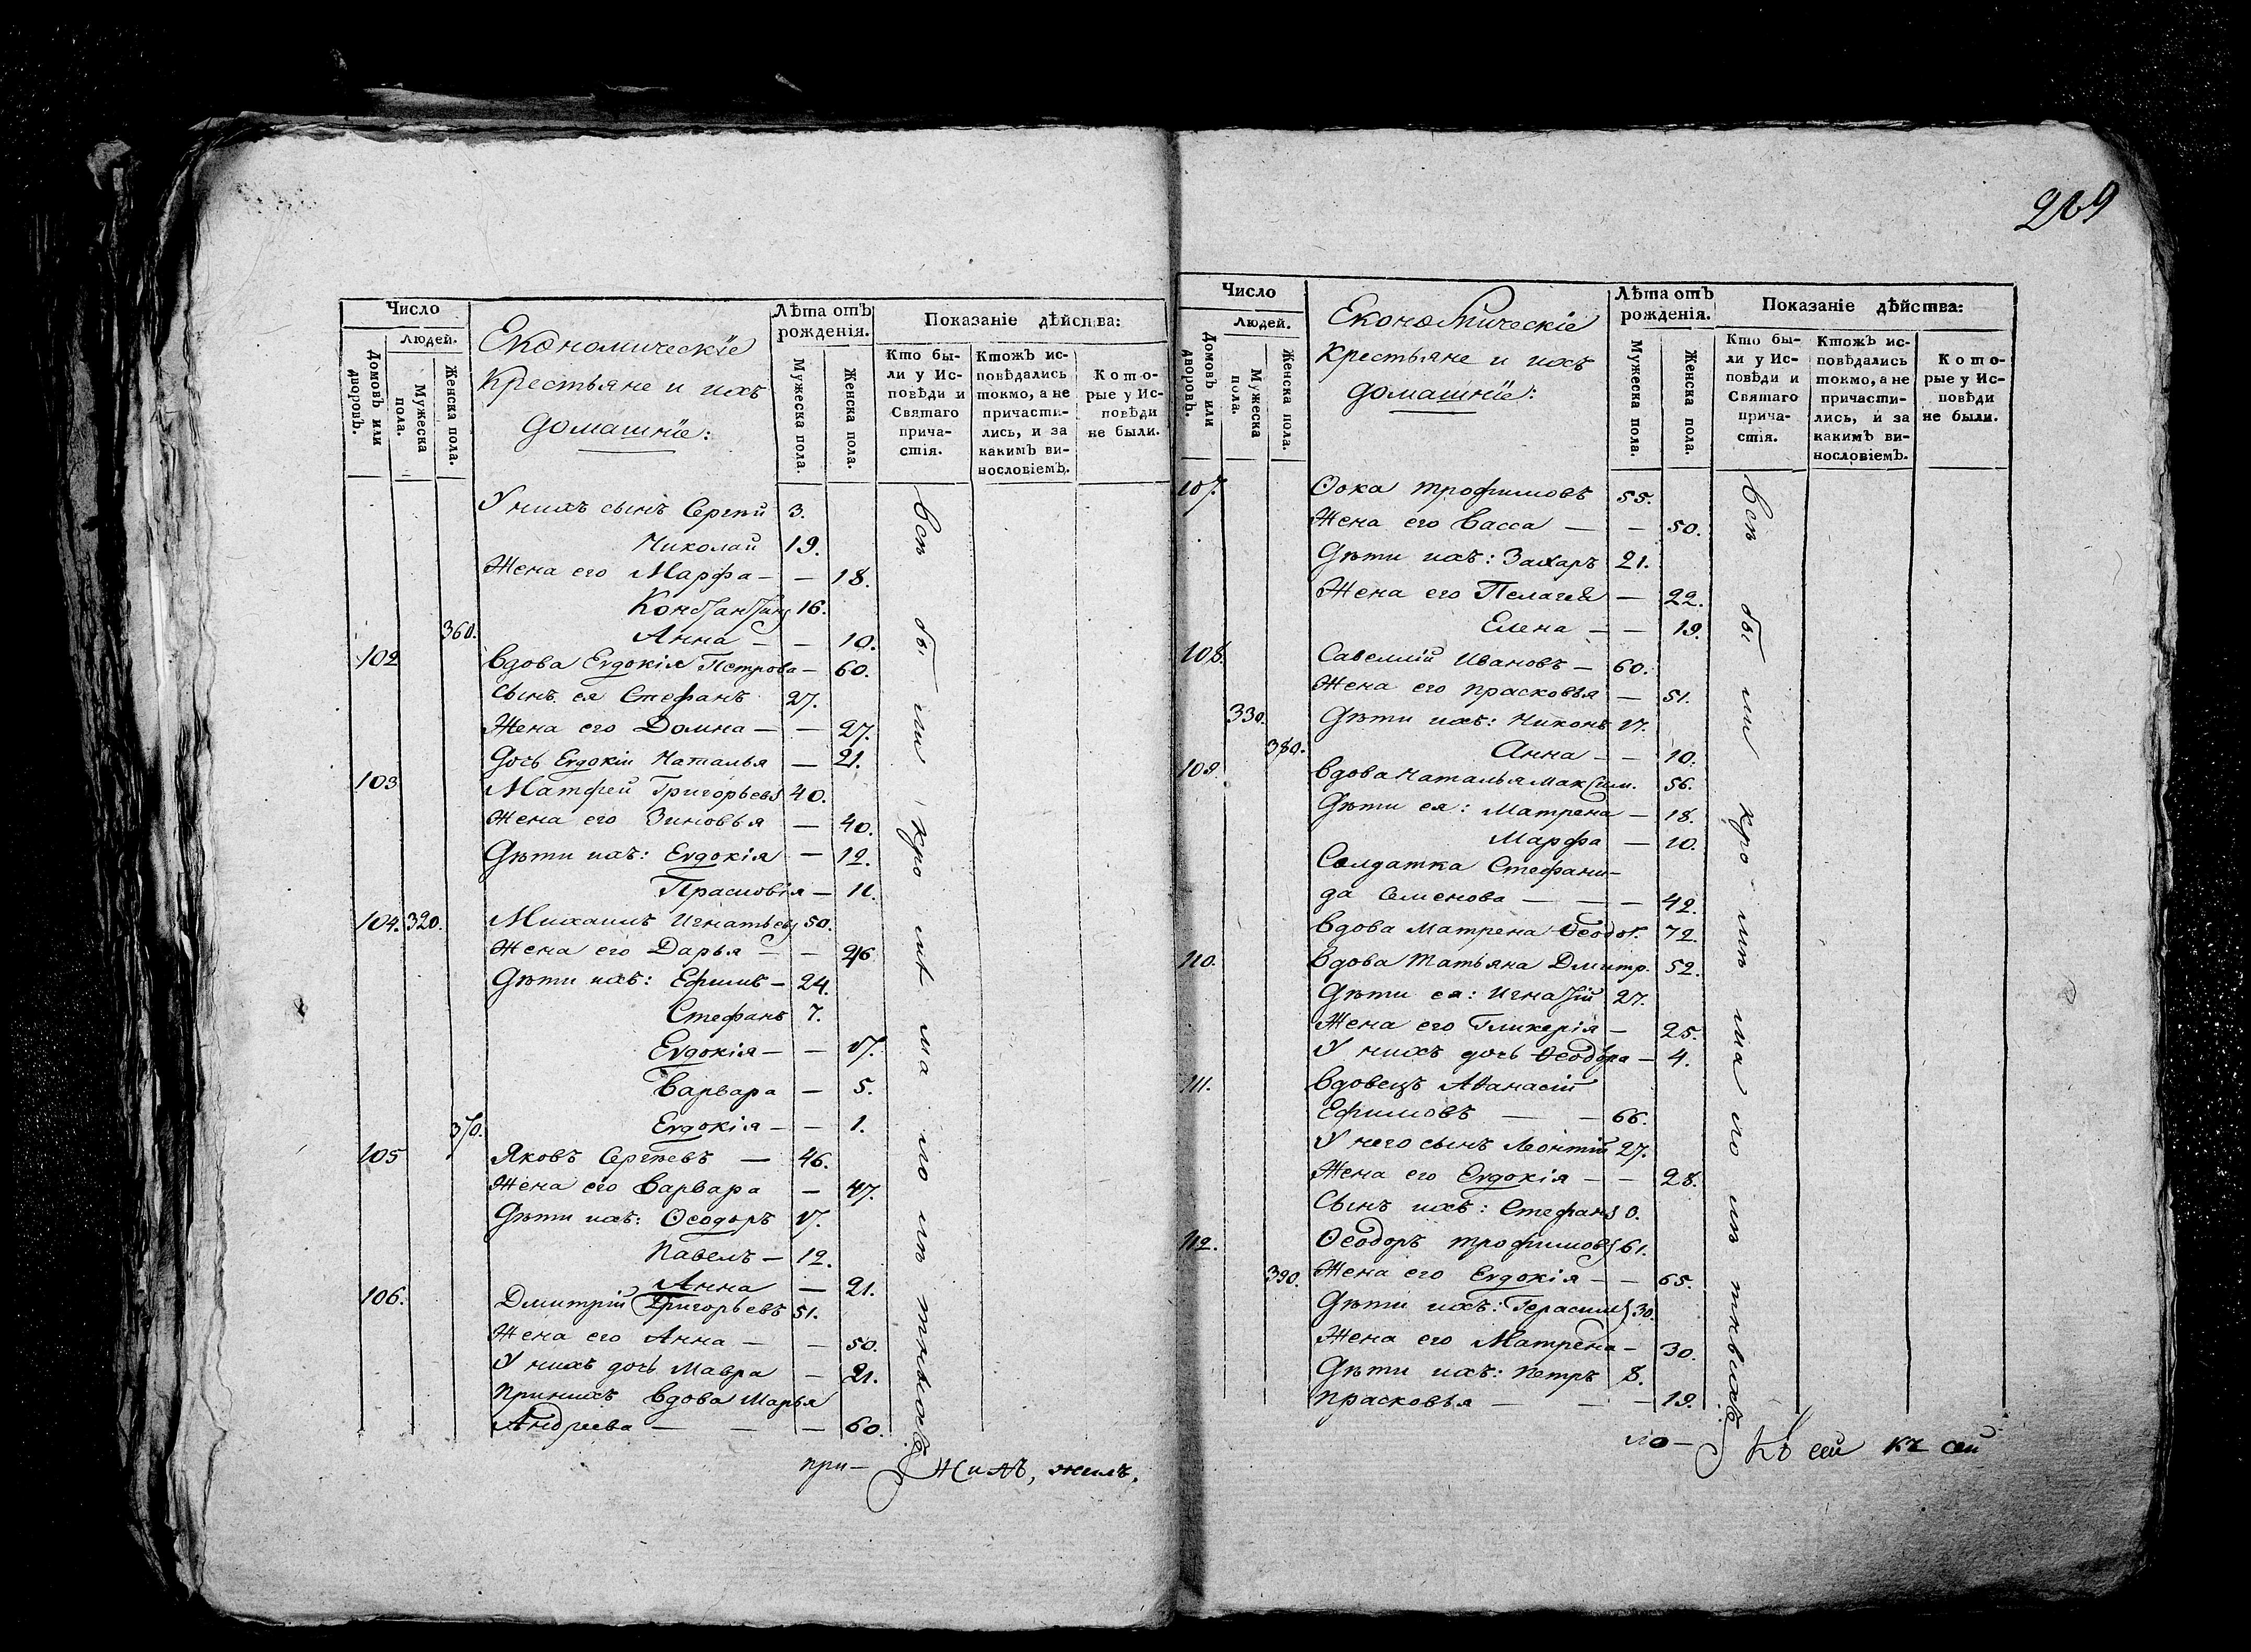 Число
Людей.
Домовъ или дворовъ.
Мужеска пола.
Женска пола.
Економическїе
Крестьяне и ихъ
домашнїе:
Лѣта отъ рожденія.
Мужеска пола.
Женска пола.
Показаніе дѣйства:
Кто были у Исповѣди и Святаго причастія.
Ктожъ исповѣдались токмо, а не причастились, и за какимъ винословіемъ.
Которые у Исповѣди не были.
У нихъ сынъ Сергѣй 3.
Николай 19.
Жена его Марфа — — 18.
Константинъ 16.
360. Анна — — 10.
102 Вдова Еѵдокія Петрова — 60.
Сынъ ея Стефанъ 27.
Жена его Домна — — 27.
Дочь Еѵдокіи Наталья — 21.
103 Матфей Григорьевъ 40.
Жена его Зиновья — 40.
Дѣти ихъ: Еѵдокія — 12.
Прасковія — 11.
104. 320. Михаилъ Игнатьевъ 50.
Жена его Дарья — — 46
Дѣти ихъ: Ефимъ — 24.
Стефанъ 7.
Еѵдокія — — 17.
Варвара — 5.
370. Еѵдокія — — 1.
105 Яковъ Сергѣевъ — 46.
Жена его Варвара — 47.
Дѣти ихъ: Ѳеодоръ 17.
Павелъ — 12.
Анна — 21.
106. Дмитрій Григорьевъ 51.
Жена его Анна — — 50.
У нихъ дочь Мавра — 21.
При нихъ вдова Марья
Андреева — — — 60.
Всѣ были кромѣ малолѣтныхъ
при —
жилъ, жилъ.
219
Число
Людей.
Домовъ или дворовъ.
Мужеска пола.
Женска пола.
Економическіе
крестьяне и ихъ
домашнїе:
Лѣта отъ рожденія.
Мужеска пола.
Женска пола.
Показаніе дѣйства:
Кто были у Исповѣди и Святаго причастія.
Ктожъ исповѣдались токмо, а не причастились, и за какимъ винословіемъ.
Которые у Исповѣди не были.
107. Ѳока Трофимовъ 55.
Жена его Васса — — 50.
Дѣти ихъ: Захаръ 21.
Жена его Пелагея — 22.
Елена — — 19.
108. Савеллій Ивановъ — 60.
Жена его Прасковья — 51.
330. Дѣти ихъ: Никонъ 17.
380. Анна — — 10.
109. Вдова Наталья Максим. 56.
Дѣти ея: Матрена — 18.
Марфа — 10.
Солдатка Стефани-
да Семенова — — — 42.
Вдова Матрена Ѳеодот. 72.
110. Вдова Татьяна Дмитр. 52.
Дѣти ея: Игнатій 27.
Жена его Гликерія — 25.
У нихъ дочь Ѳеодора — 4.
111. Вдовецъ Аѳанасій
Ефимовъ — — 66.
У него сынъ Леонтій 27.
Жена его Еѵдокія — — 28.
Сынъ ихъ: Стефанъ 0.
112. Ѳеодоръ Трофимовъ 61.
390. Жена его Еѵдокія — — 65.
Дѣти ихъ: Герасимъ 30.
Жена его Матрена — 30.
Дѣти ихъ: Петръ 8.
Прасковья — — — 19.
Всѣ были кромѣ малолѣтныхъ
Къ сей къ сей